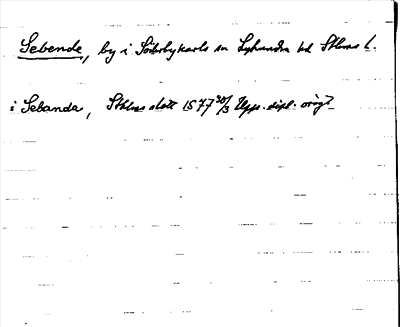 Sebende, by i Söderbykarls sn Lyhundra hd Sthlms l.
i Sebanda, Sthlms slott 1577 30/3 Upps. dipl. orig.